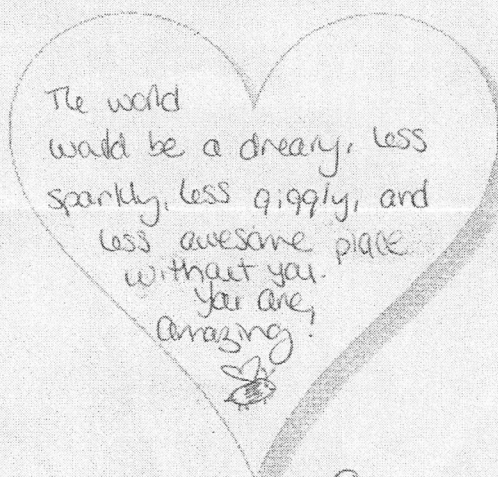 The world
would be a dreary, less
sparkly, less giggly, and
less awesome place
without you.
You are
amazing!